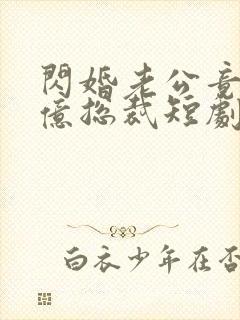 閃婚老公竟
億总裁短劇
白衣少年在否